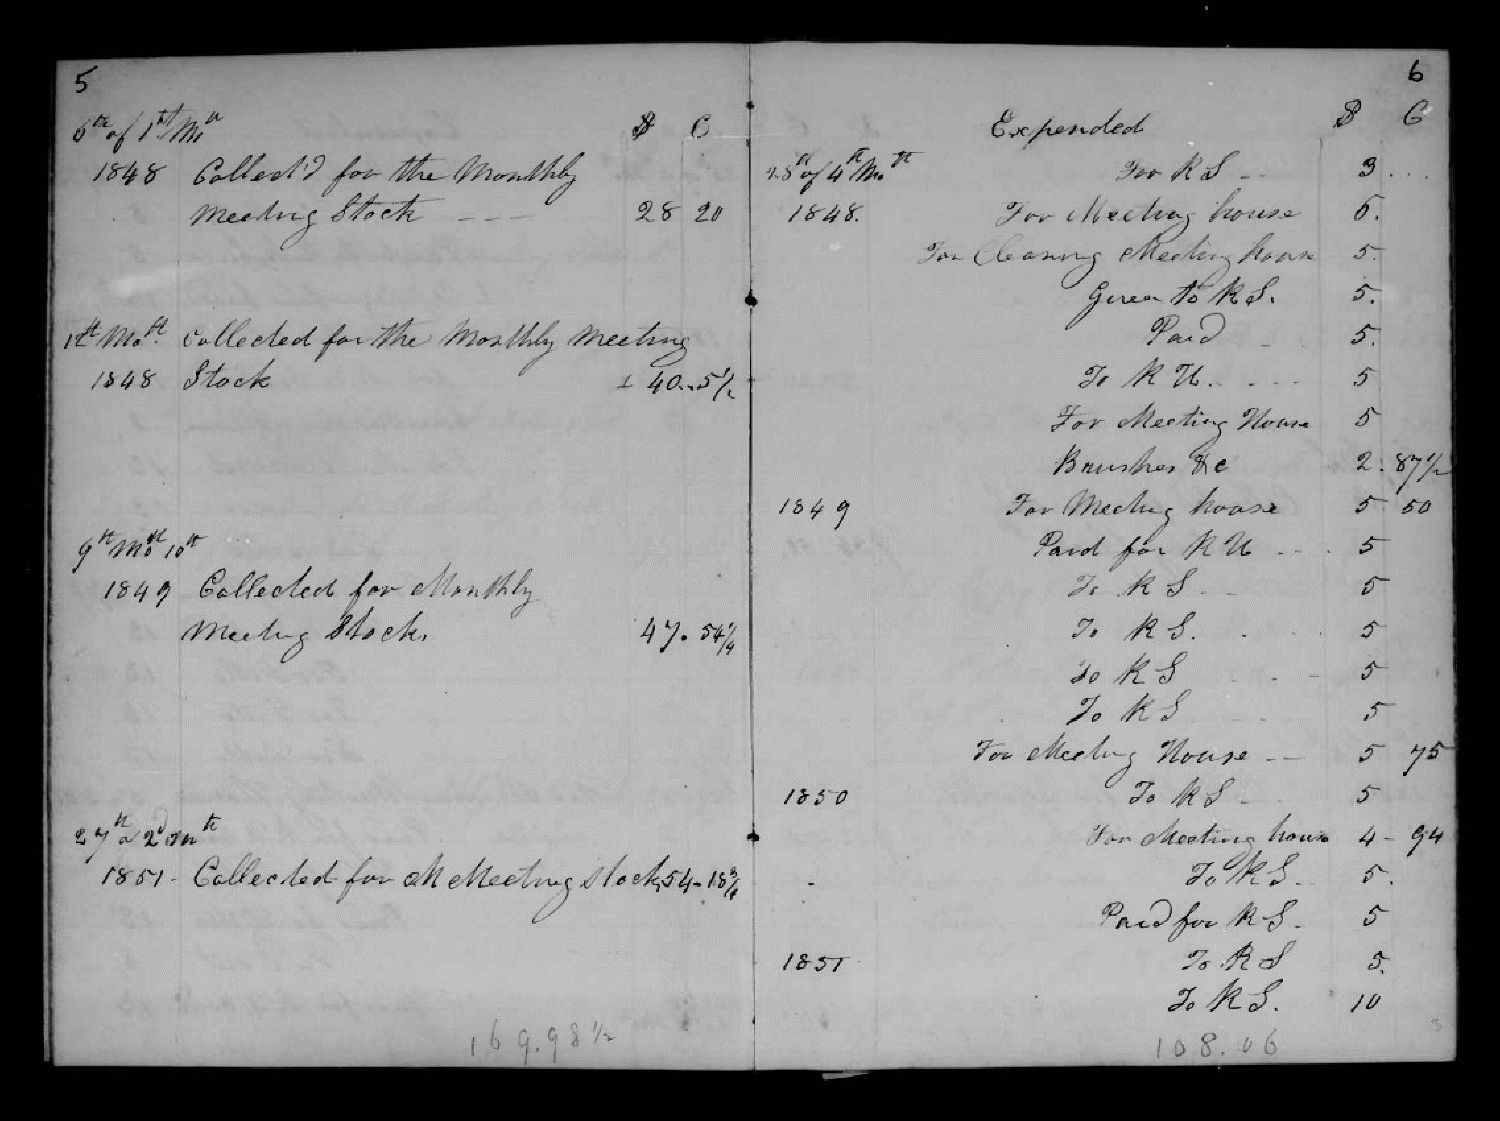 5
6th of 1st Mo $ C
1848 Collect'd for the Monthly
Meeting Stock --- 28 20
12th Mo. Collected for the Monthly Meeting
1848 Stock 40..5 1/2
9th Mo 10th
1849 Collected for Monthly
Meeting Stock. 47. 54 1/4
27th 2d m th
1851- Collected for M Meeting stock 54-18 3/4
169.98 1/2
6
Expended $ C
28th of 4th Mo For R S -- 3...
1848. For Meeting house 6.
For Cleaning Meeting house 5.
Given to R S. 5.
Paid - 5.
To R U. - - - 5
For Meeting House 5
Brushes &c 2.87 1/2
1849 For Meeting house 5 50
Paid for R U --. 5
To R S -- 5
To R S. . . 5
To R S - - 5
To R S - 5
For Meeting House -- 5 75
1850 To R S - 5
For Meeting house 4-94
To R S.. 5.
Paid for R S. 5
1851 To R S 5.
To R S. 10
108.06